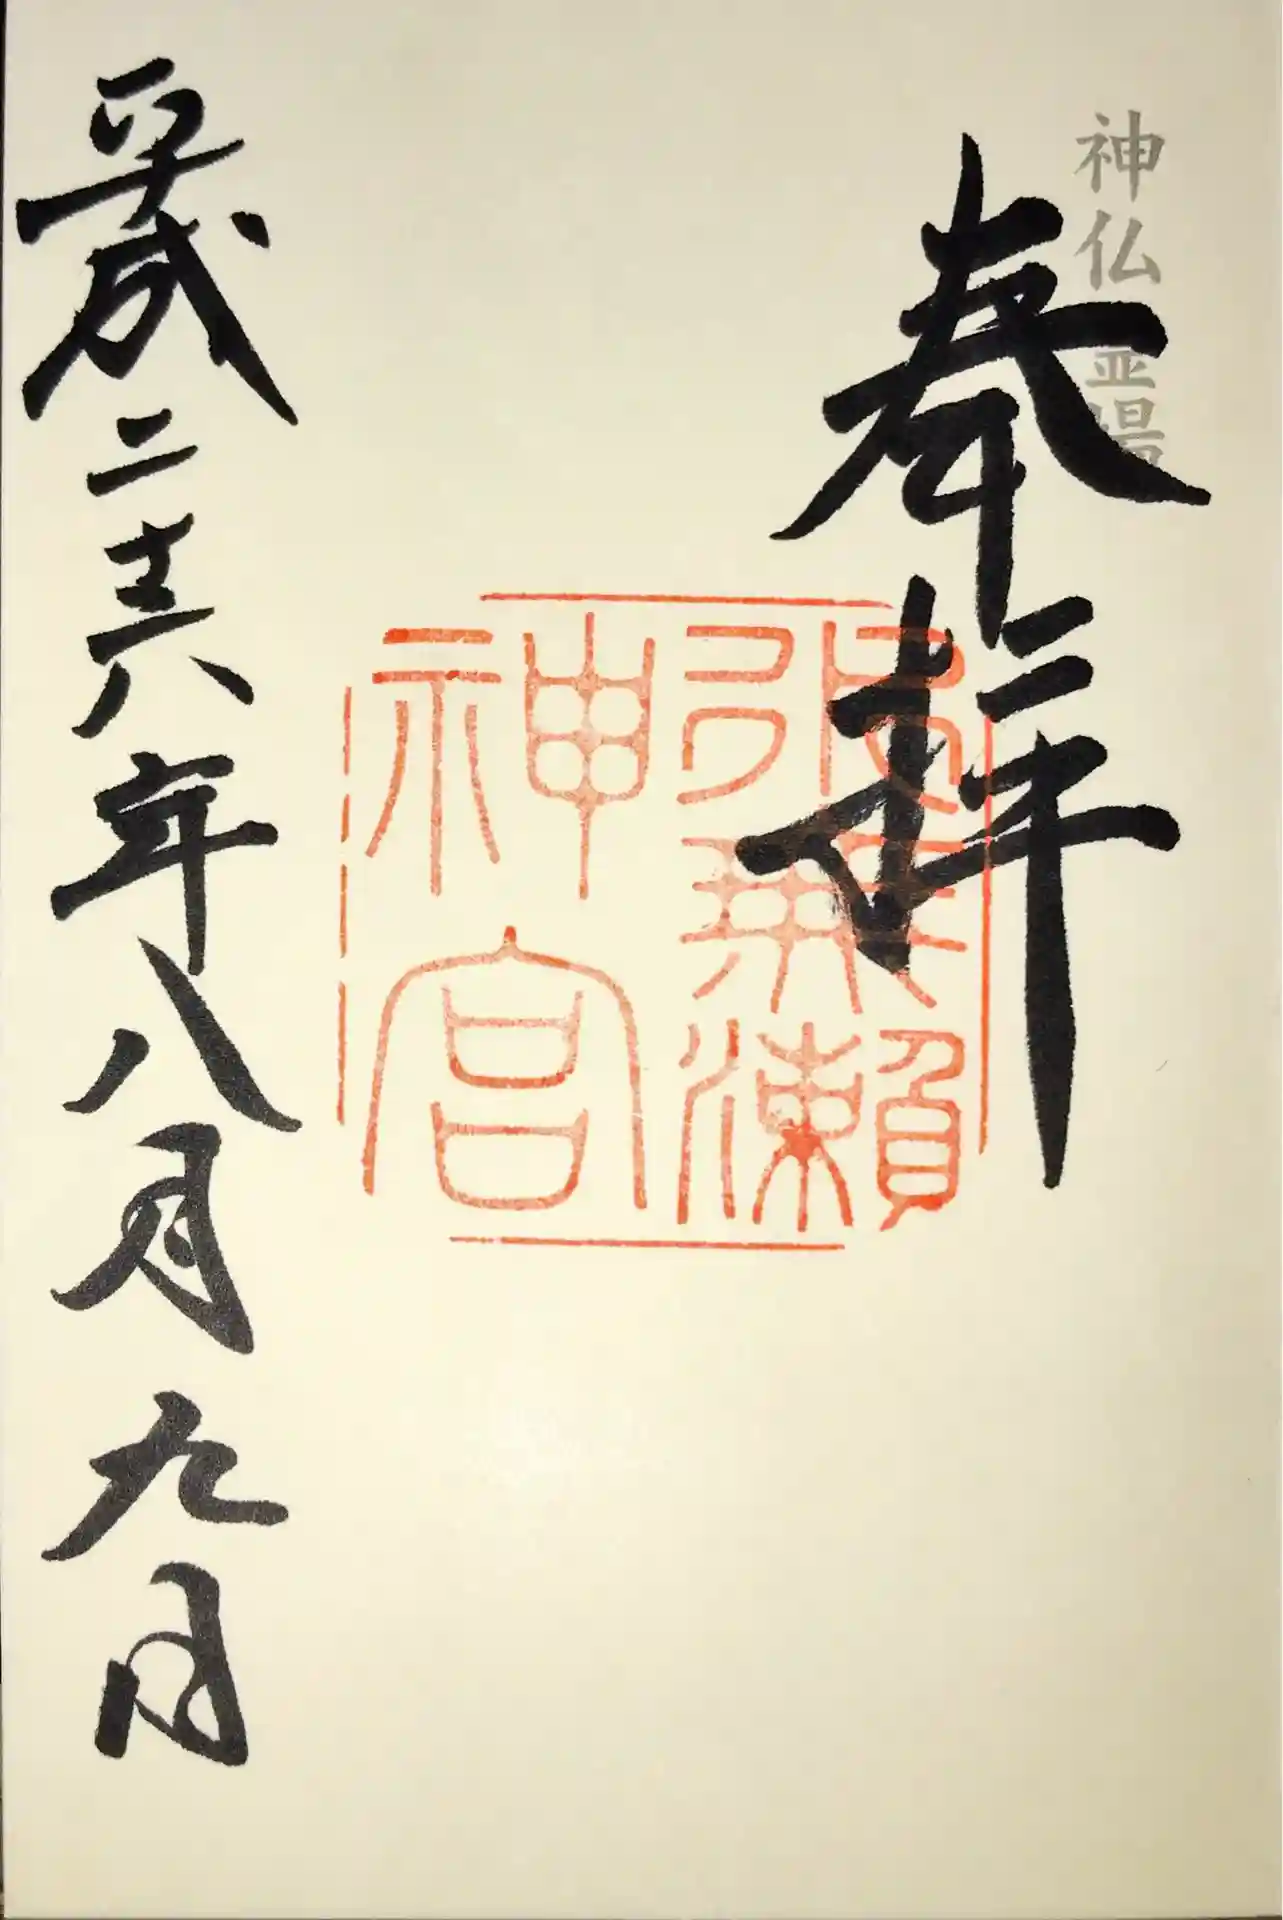 神仏霊場
奉拝
水無瀬
神宮
平成二十六年八月九日